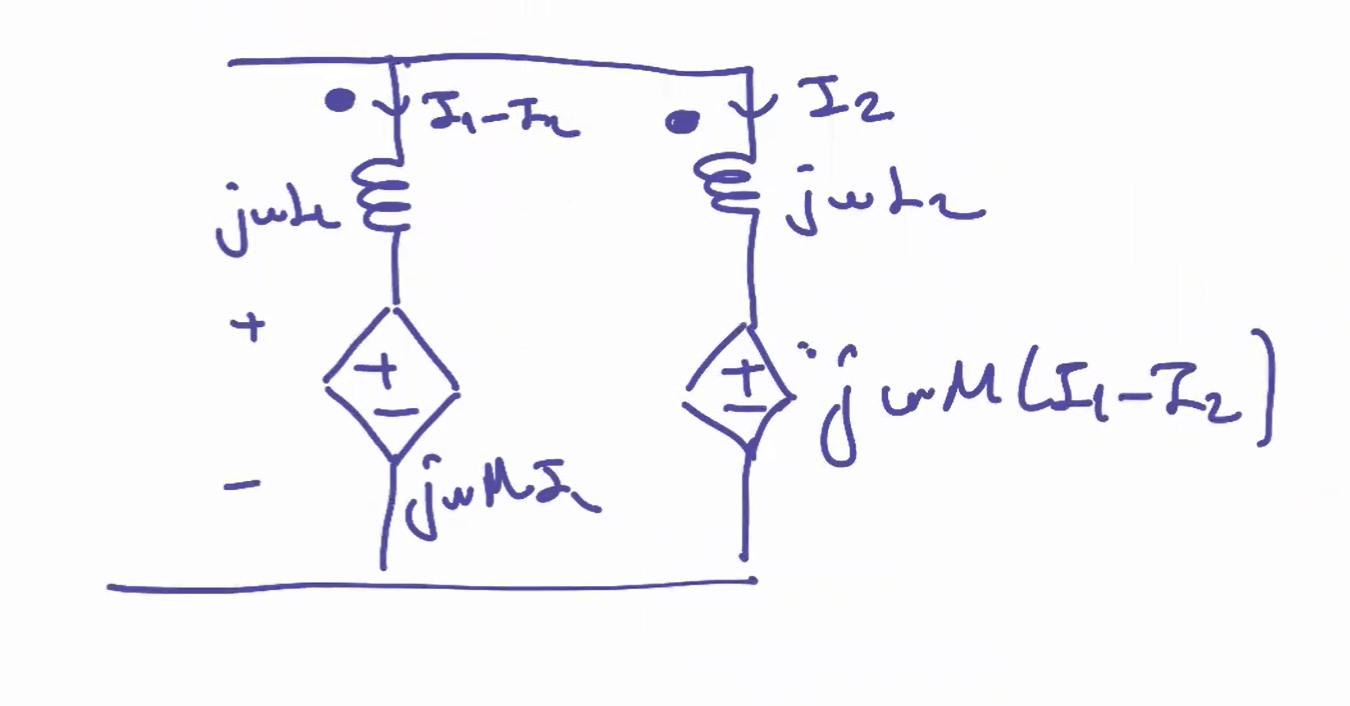 I₁-I₂
I₂
jωL₁
jωL₂
+
+
-
+
-
jωM(I₁-I₂)
-
jωMI₂